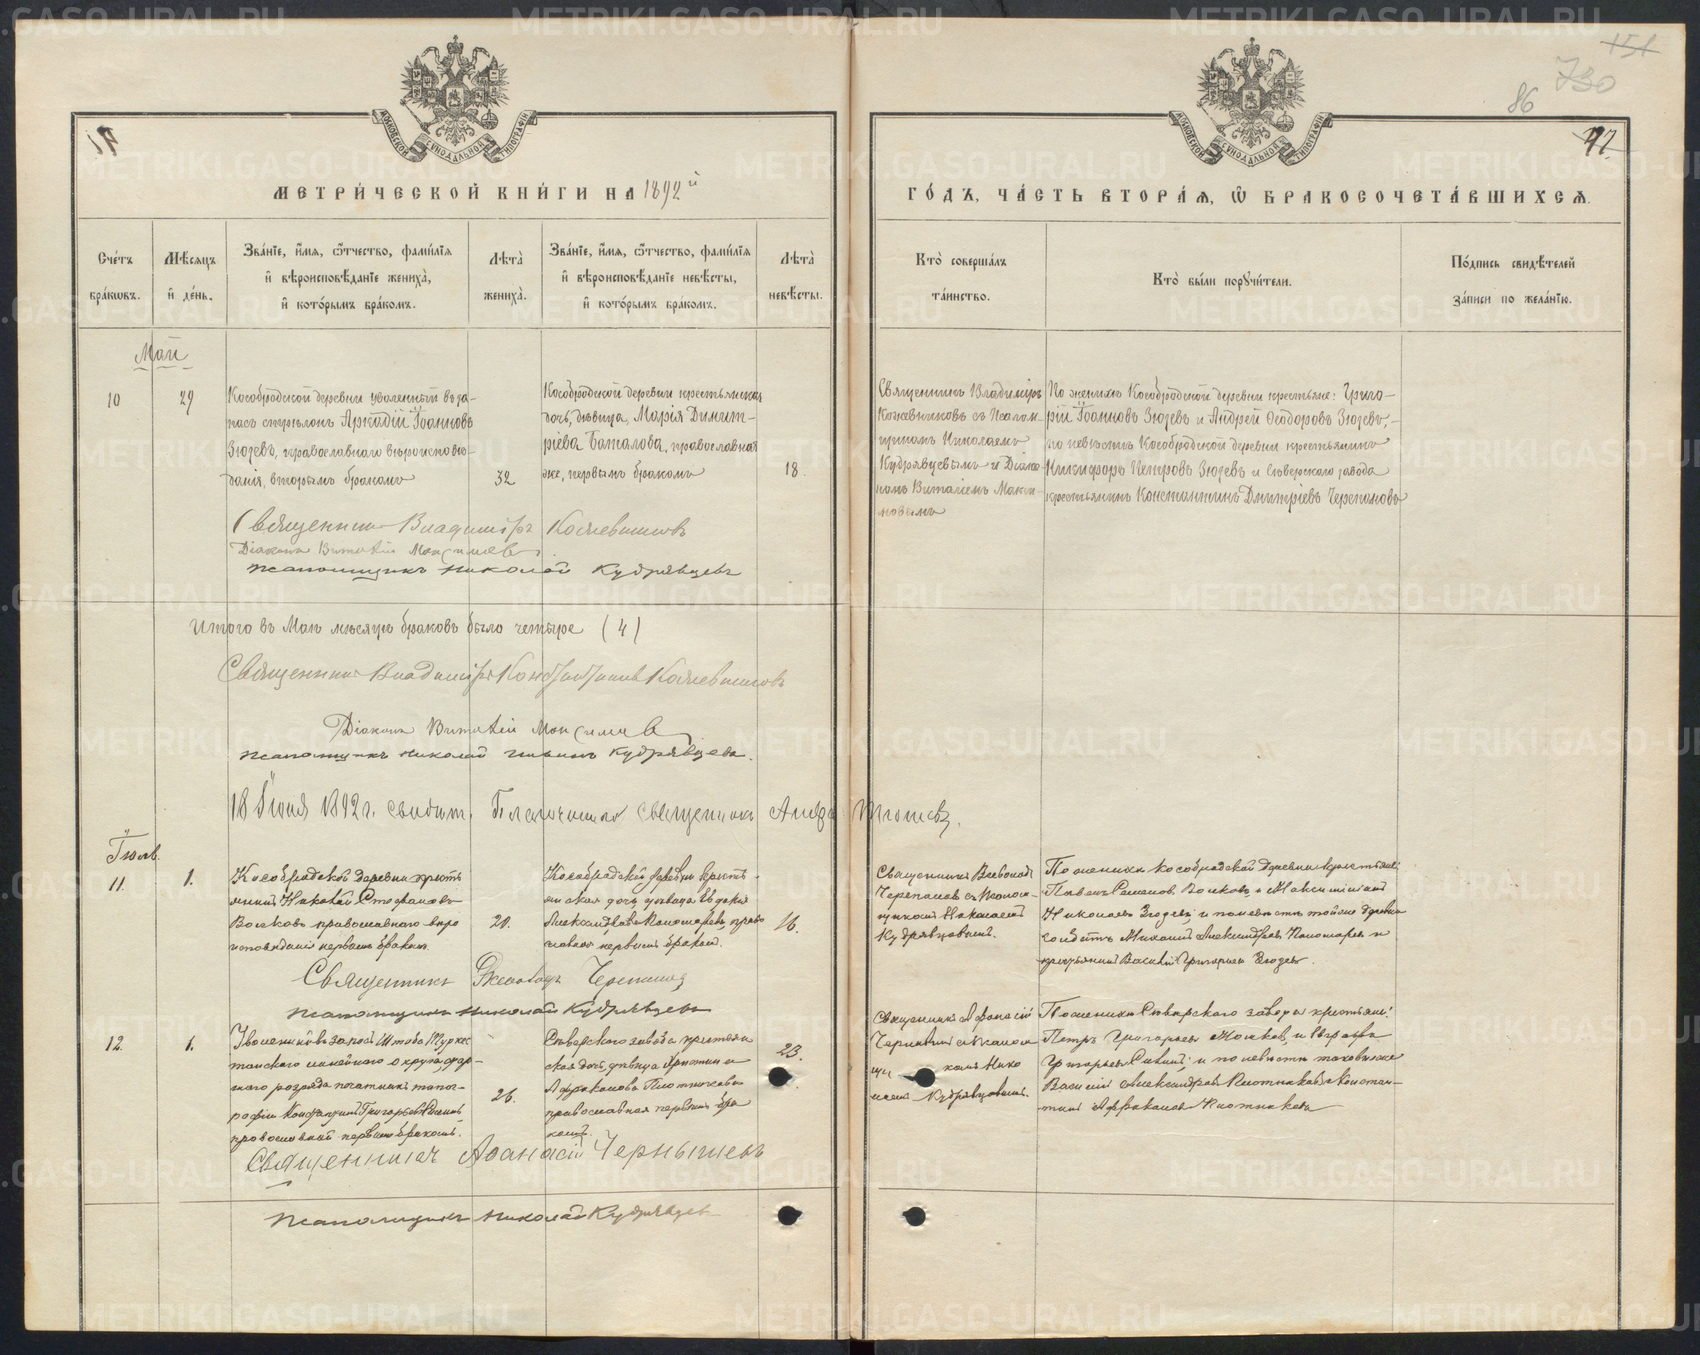 МЕТРИ́ЧЕСКОЙ КНИ́ГИ НА 1892й
ГО́ДЪ, ЧА́СТЬ ВТОРА́Я, Ѡ БРАКОСОЧЕТА́ВШИХСЯ.
151
730
86
Сче́тъ бра́ковъ.
Мѣсяцъ и де́нь.
Зва́нїе, и́мя, ѻ́тчество, фами́лїя
и вѣроисповѣ́данїе жениха̀,
и кото́рымъ бра́комъ.
Лѣта̀ жениха̀.
Зва́нїе, и́мя, ѻ́тчество, фами́лїя
и вѣроисповѣ́данїе невѣ́сты,
и кото́рымъ бра́комъ.
Лѣта̀ невѣ́сты.
Кто̀ соверша́лъ
та́инство.
Кто̀ бы́ли порꙋчи́тели.
По́дпись свидѣ́телей
за́писи по жела́нїю.
Май
10
29
Кособродской деревни уволенный въ за-
пасъ стрѣлокъ Аркадій Іоанновъ
Зюзевъ, православнаго вѣроисповѣ-
данія, вторымъ бракомъ
32
Кособродской деревни крестьянская
дочь, дѣвица, Марія Димит-
ріева Баталова, православная
же, первымъ бракомъ
18.
Священникъ Владиміръ
Кожевниковъ съ Псалом-
щикомъ Николаемъ
Кудрявцевымъ и Діако-
номъ Виталіемъ Макси-
мовымъ
По женихѣ Кособродской деревни крестьяне: Григо-
рій Іоанновъ Зюзевъ и Андрей Ѳеодоровъ Зюзевъ,-
по невѣстѣ Кособродской деревни крестьянинъ
Никифоръ Петровъ Зюзевъ и Сѣверскаго завода
крестьянинъ Константинъ Дмитріевъ Черепановъ
Священникъ Владиміръ Кожевниковъ
Діаконъ Виталій Максимовъ
Псаломщикъ Николай Кудрявцевъ
Итого въ Маѣ мѣсяцѣ браковъ было четыре (4)
Священникъ Владиміръ Кожевниковъ
Діаконъ Виталій Максимовъ
Псаломщикъ Николай Кудрявцевъ.
18 Іюня 1892 г. свидѣт. Благочинный Священникъ
Іюль.
11.
1.
Кособродской деревни кресть
янинъ Николай Стефановъ
Волковъ православнаго вѣро
исповѣданія первымъ бракомъ.
20.
Кособродской деревни кресть-
янская дочь дѣвица Евдокія
Александрова Пономарева, право
славная первымъ бракомъ.
16.
Священникъ Всеволодъ
Черепановъ съ Псалом-
щикомъ Николаемъ
Кудрявцовымъ.
По женихѣ Кособродской деревни крестьяне:
Павелъ Волковъ и Максимиліанъ
Николаевъ Зюзевъ; и по невѣстѣ тойже деревни
солдатъ Михаилъ Александровъ Пономаревъ и
крестьянинъ Василій Григорьевъ Зюзевъ.
Священникъ Всеволодъ Черепановъ
Псаломщикъ Николай Кудрявцевъ
12.
1.
Уволенный въ запасъ Штаба Турке
станскаго военнаго округа, стар-
шаго разряда печатникъ типог-
рафіи Константинъ Григорьевъ
православный первымъ бракомъ.
26.
Сѣверскаго завода крестьян
ская дочь, дѣвица Христина
Африканова Плотникова
православная первымъ бра
комъ.
23.
Священникъ Аѳанасій
Чернышевъ съ Псалом
щи комъ Нико
лаемъ Кудрявцовымъ.
По женихѣ Сѣверскаго завода крестьяне:
Петръ Григорьевъ и
Григорьевъ; и по невѣстѣ таковыеже
Василій Александровъ Плотниковъ и Констан-
тинъ Африкановъ Плотниковъ
Священникъ Аѳанасій Чернышевъ
Псаломщикъ Николай Кудрявцевъ
METRIKI.GASO-URAL.RU